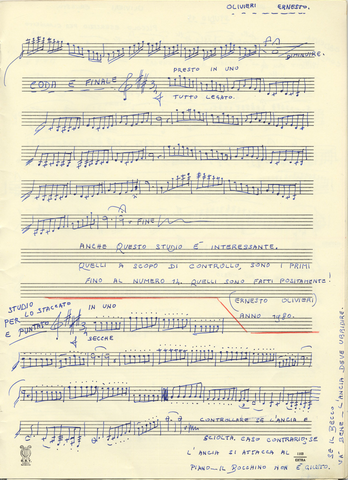 OLIVIERI ERNESTO.
DIMINUIRE.
PRESTO IN UNO
CODA E FINALE
TUTTO LEGATO.
FINE
ANCHE QUESTO STUDIO É INTERESSANTE.
QUELLI A SCOPO DI CONTROLLO, SONO I PRIMI
FINO AL NUMERO 14. QUELLI SONO FATTI POSITAMENTE!
ERNESTO OLIVIERI
ANNO 1980.
STUDIO
PER LO STACCATO IN UNO
E PUNTATE.
SECCHE
CONTROLLARE SE L'ANCIA É
SCIOLTA, CASO CONTRARIO SE
L'ANCIA SI ATTACCA AL
PIANO IL BOCCHINO NON É GIUSTO.
SE IL BECCO
VA' BENE L'ANCIA DEVE VIBRARE.